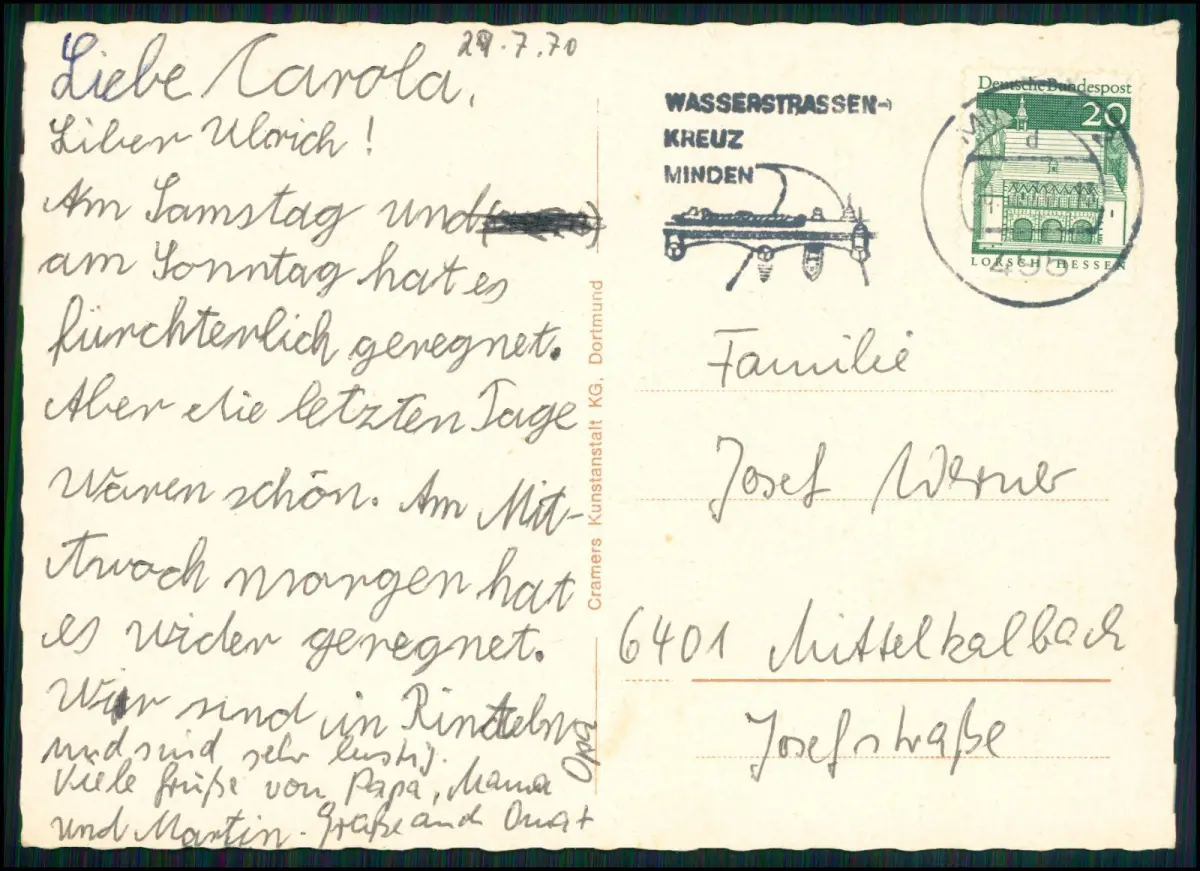 29.7.70
Liebe Carola,
Liber Ulrich!
Am Samstag und
am Sonntag hat es
fürchterlich geregnet.
Aber die letzten Tage
Waren schön. Am Mit-
twoch morgen hat
es wider geregnet.
Wir sind in Rinteln
und sind sehr lustig.
Viele Grüße von Papa, Mama
und Martin. Grüße auch Oma +
Opa
Cramers Kunstanstalt KG, Dortmund
WASSERSTRASSEN-
KREUZ
MINDEN
Deutsche Bundespost
20
d
495
LORSCH HESSEN
Familie
Josef Werner
6401 Mittelkalbach
Josefstraße